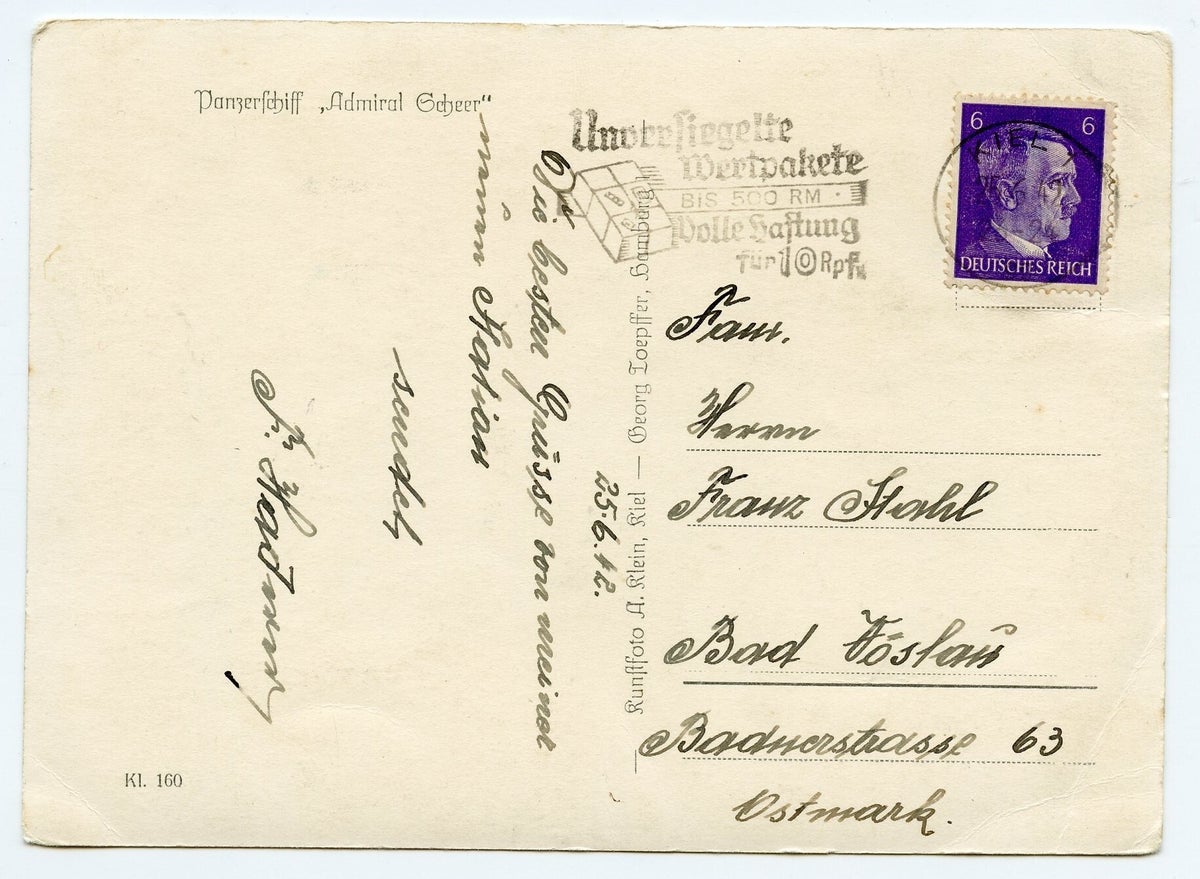 Panzerschiff „Admiral Scheer"
Unversiegelte
Wertpakete
BIS 500 RM
Volle Haftung
für 10 Rpf
6 6
KIEL 1
DEUTSCHES REICH
25.6.42.
Die besten Grüsse von meiner
sendet
Kunstfoto A. Klein, Kiel — Georg Toepffer, Hamburg
Fam.
Herrn
Franz Stahl
Bad Vöslau
Badnerstrasse 63
Ostmark.
Kl. 160